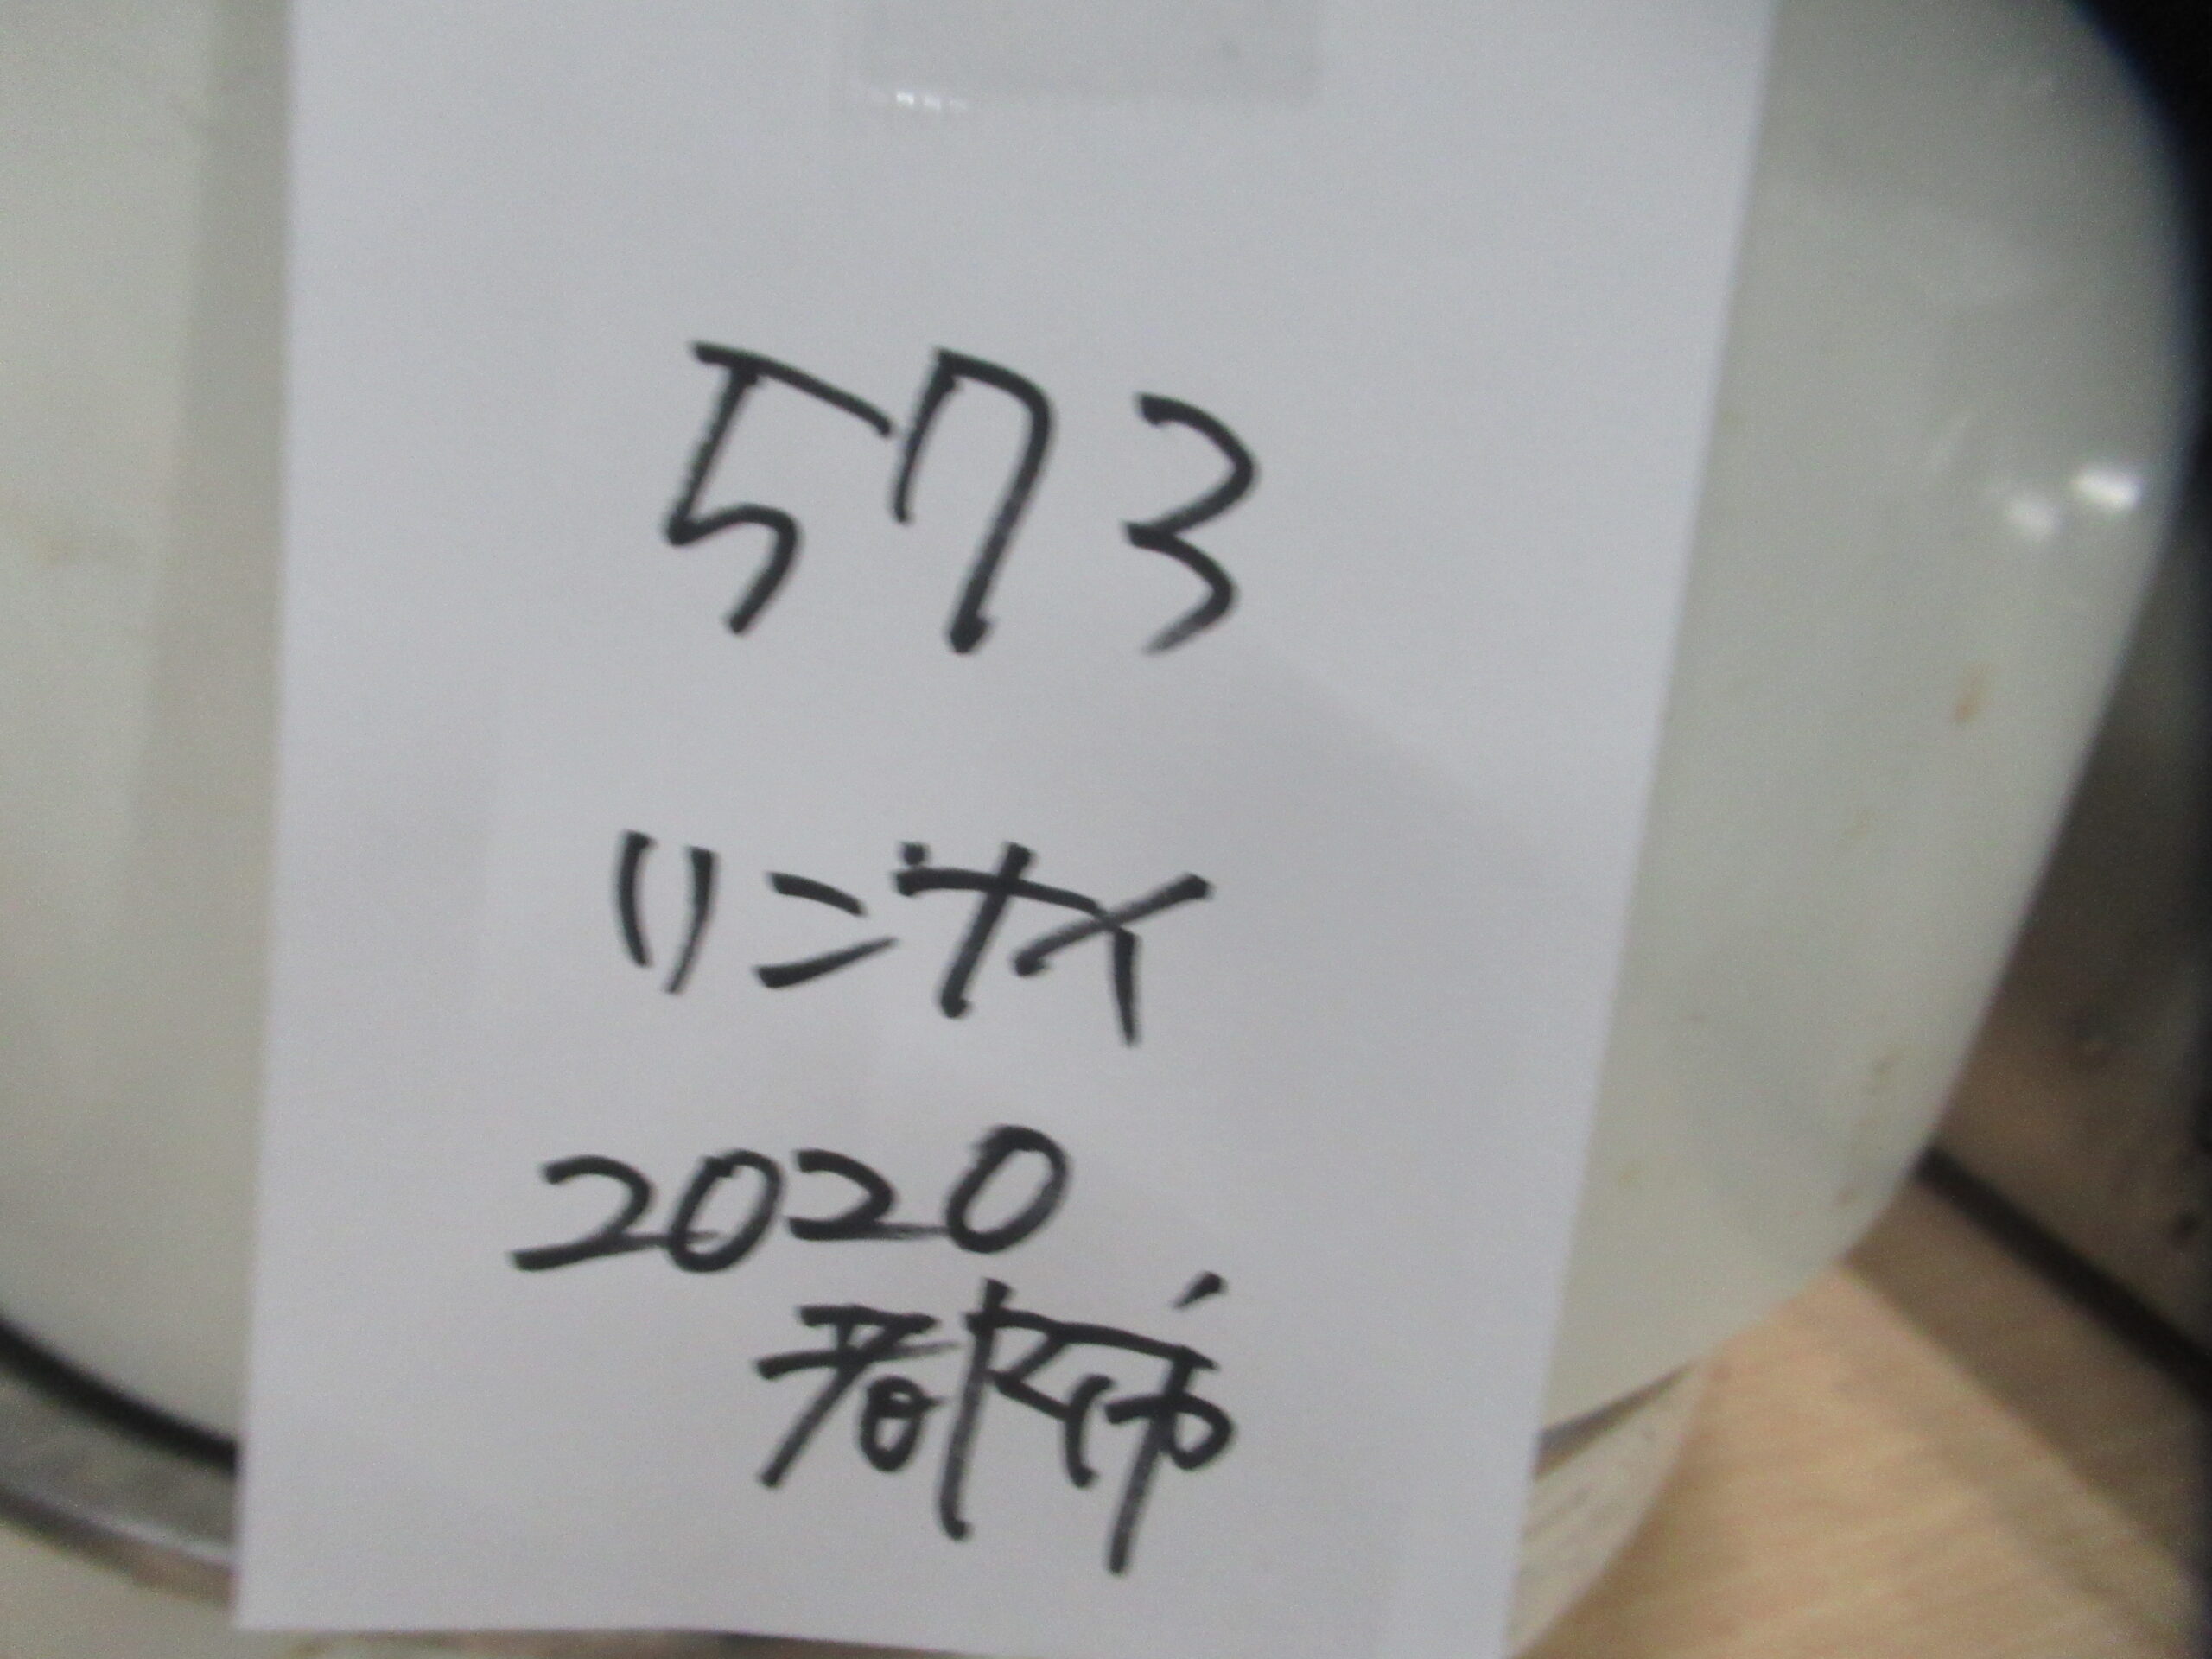 573
リンナイ
2020
都市